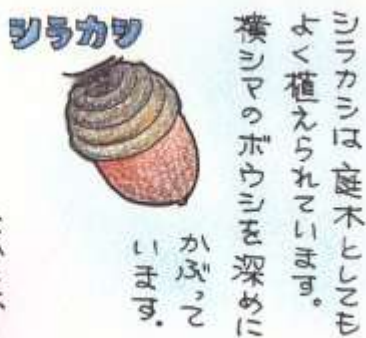 シラカシ
シラカシは庭木としても
よく植えられています。
横シマのボウシを深めに
かぶって
います.